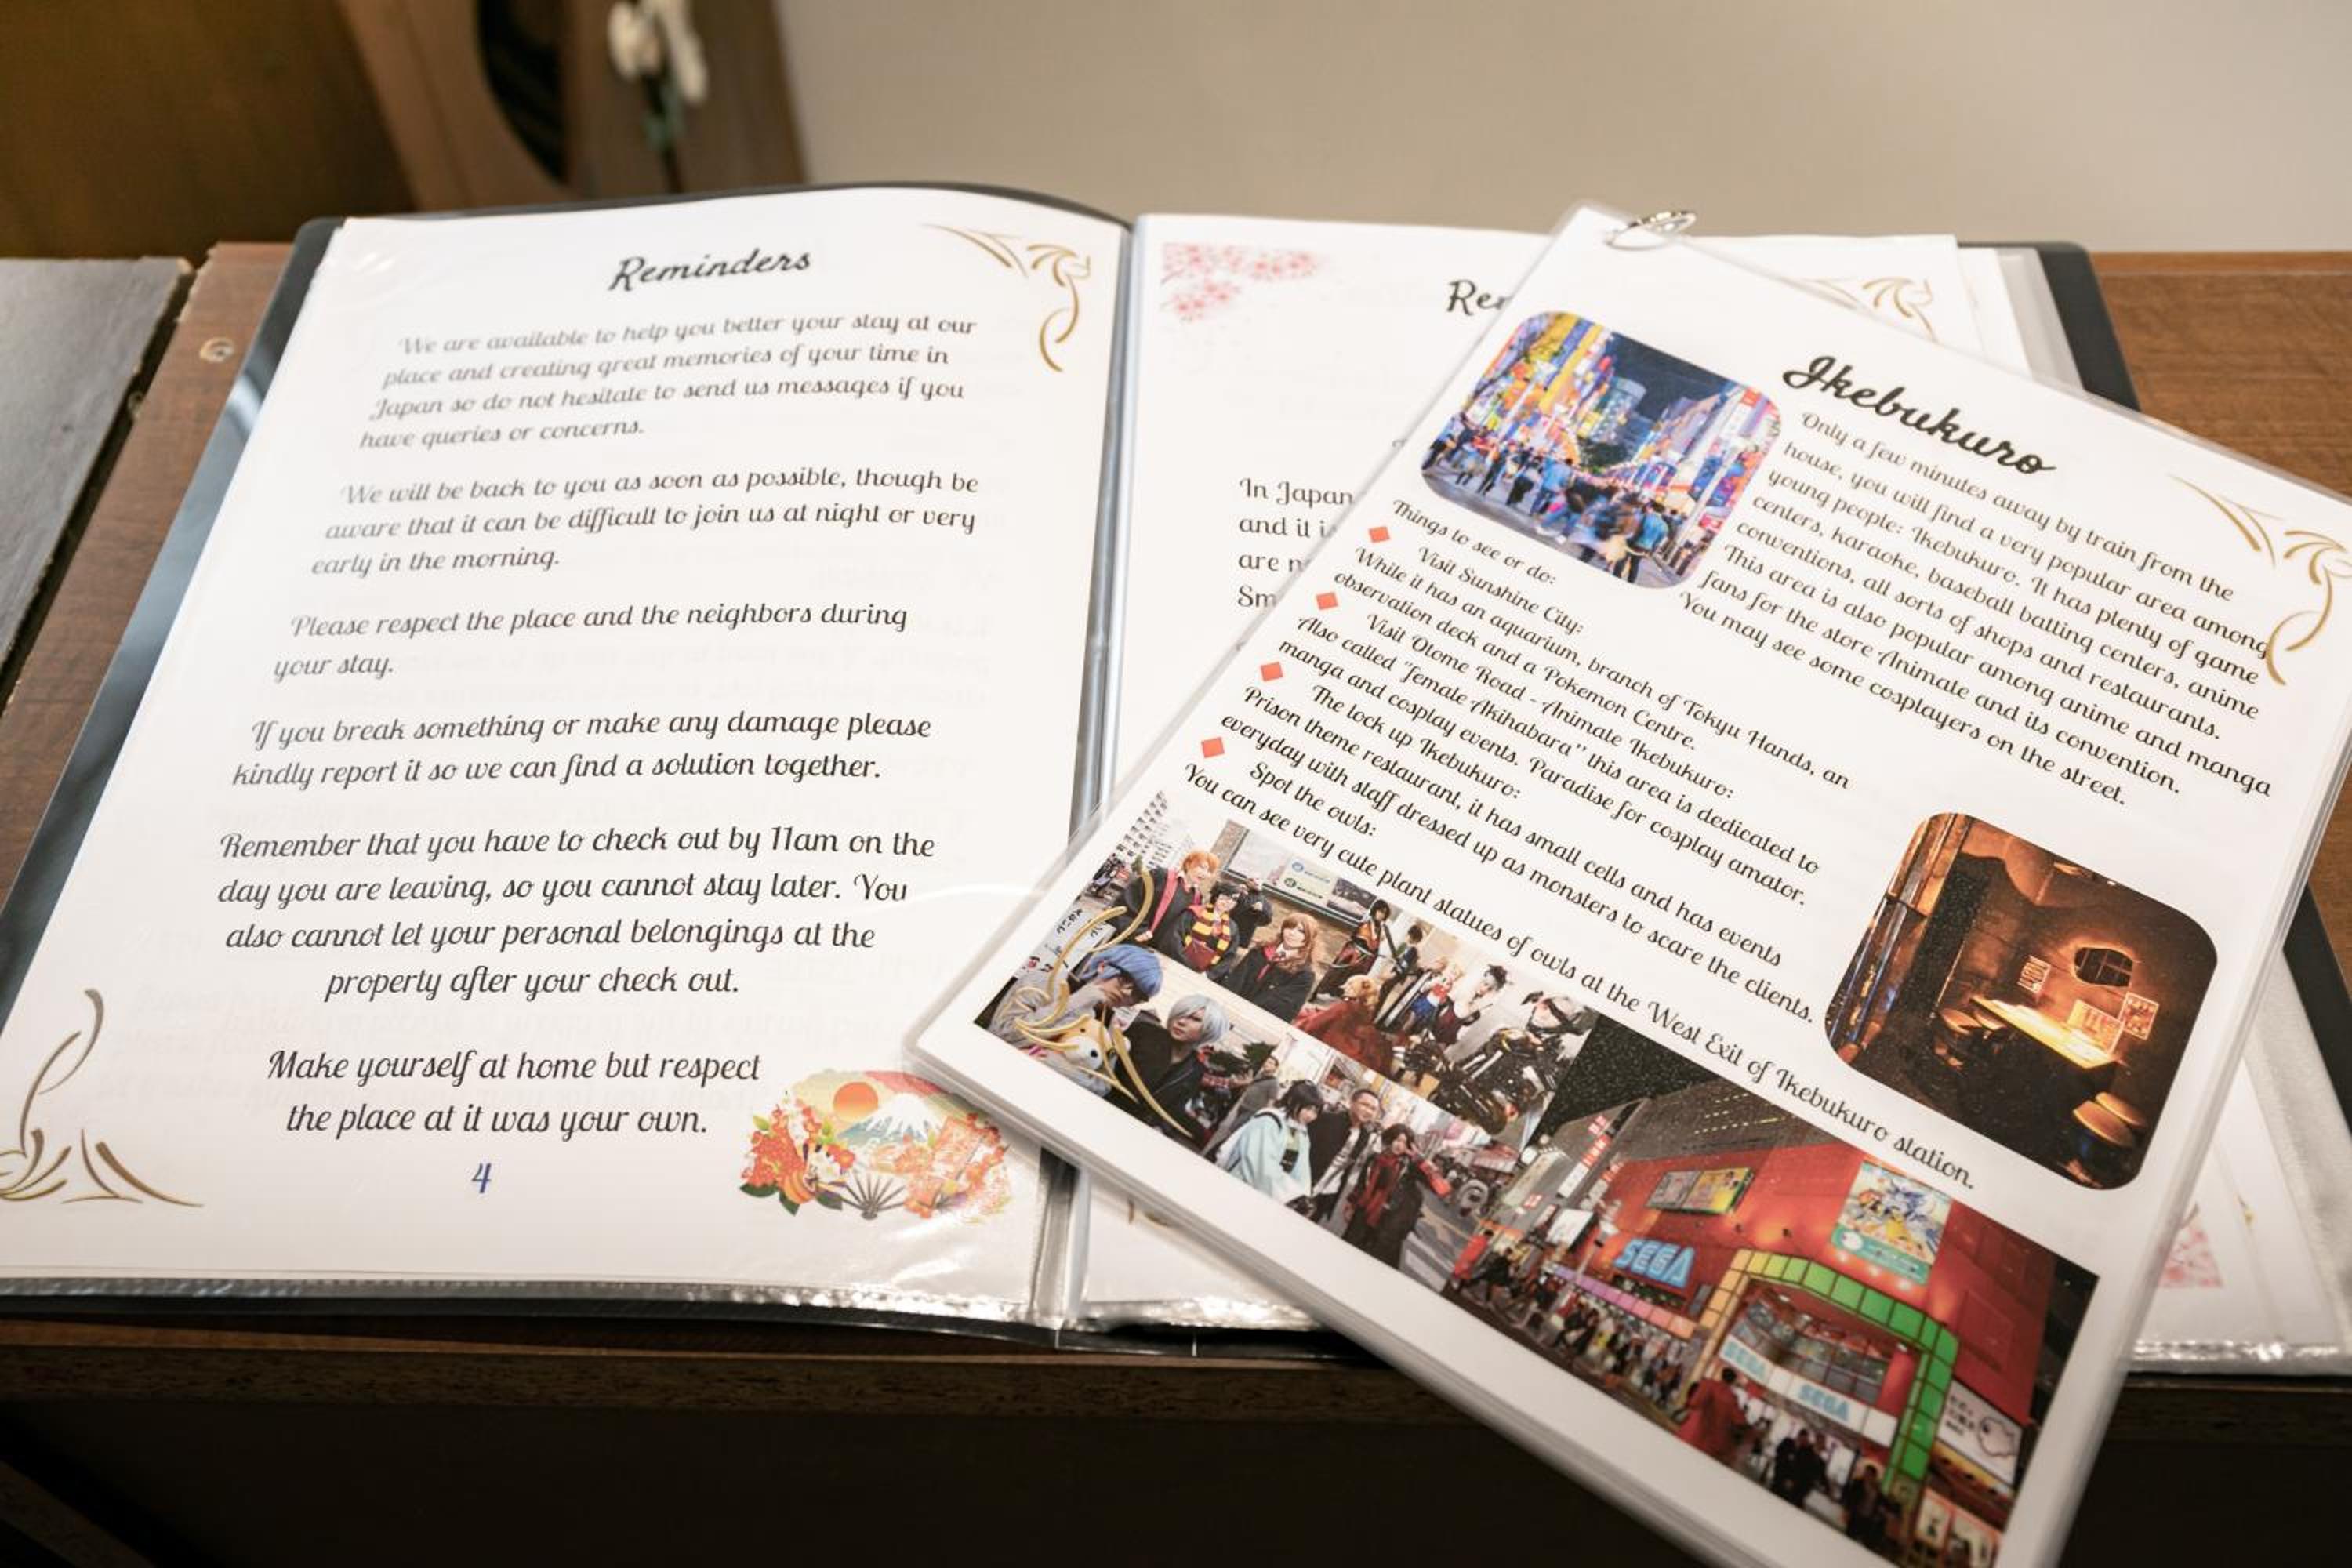 Reminders
We are available to help you better your stay at our
place and creating great memories of your time in
Japan so do not hesitate to send us messages if you
have queries or concerns.
We will be back to you as soon as possible, though be
aware that it can be difficult to join us at night or very
early in the morning.
Please respect the place and the neighbors during
your stay.
If you break something or make any damage please
kindly report it so we can find a solution together.
Remember that you have to check out by 11am on the
day you are leaving, so you cannot stay later. You
also cannot let your personal belongings at the
property after your check out.
Make yourself at home but respect
the place at it was your own.
4
In Japan
and it
are
Ikebukuro
Only a few minutes away by train from the
house, you will find a very popular area among
young people: Ikebukuro. It has plenty of game
centers, karaoke, baseball batting centers, anime
conventions, all sorts of shops and restaurants.
This area is also popular among anime and manga
fans for the store Animate and its convention.
You may see some cosplayers on the street.
Things to see or do:
Visit Sunshine City:
While it has an aquarium, branch of Tokyu Hands, an
observation deck and a Pokemon Centre.
Visit Otome Road - Animate Ikebukuro:
Also called "female Akihabara" this area is dedicated to
manga and cosplay events. Paradise for cosplay amator.
The lock up Ikebukuro:
Prison theme restaurant, it has small cells and has events
everyday with staff dressed up as monsters to scare the clients.
Spot the owls:
You can see very cute plant statues of owls at the West Exit of Ikebukuro station.
SEGA
SEGA SEGA